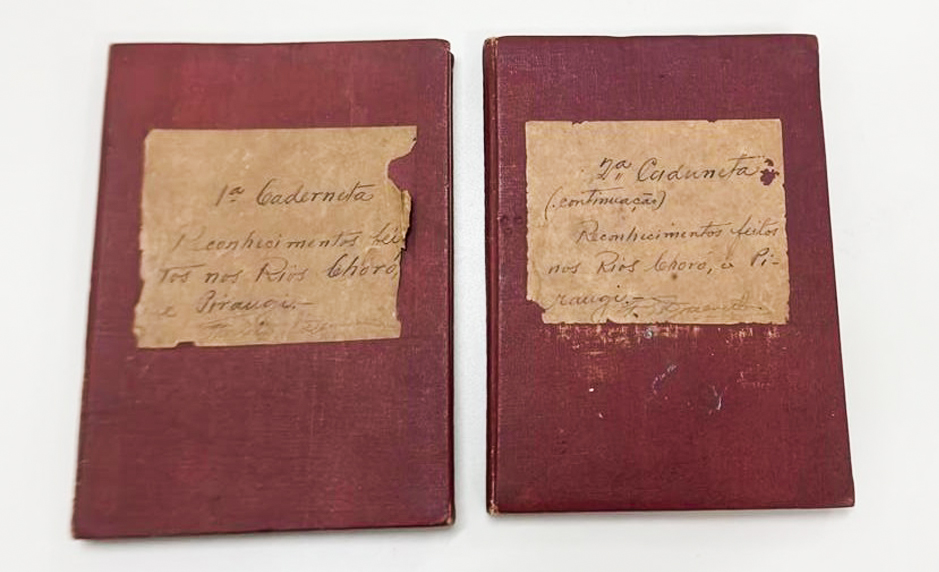 1ª Caderneta
Reconhecimentos fei
tos nos Rios Choró,
e Pirangi.-
2ª Caderneta
(continuação)
Reconhecimentos feitos
nos Rios Choró, e Pi-
rangi.-